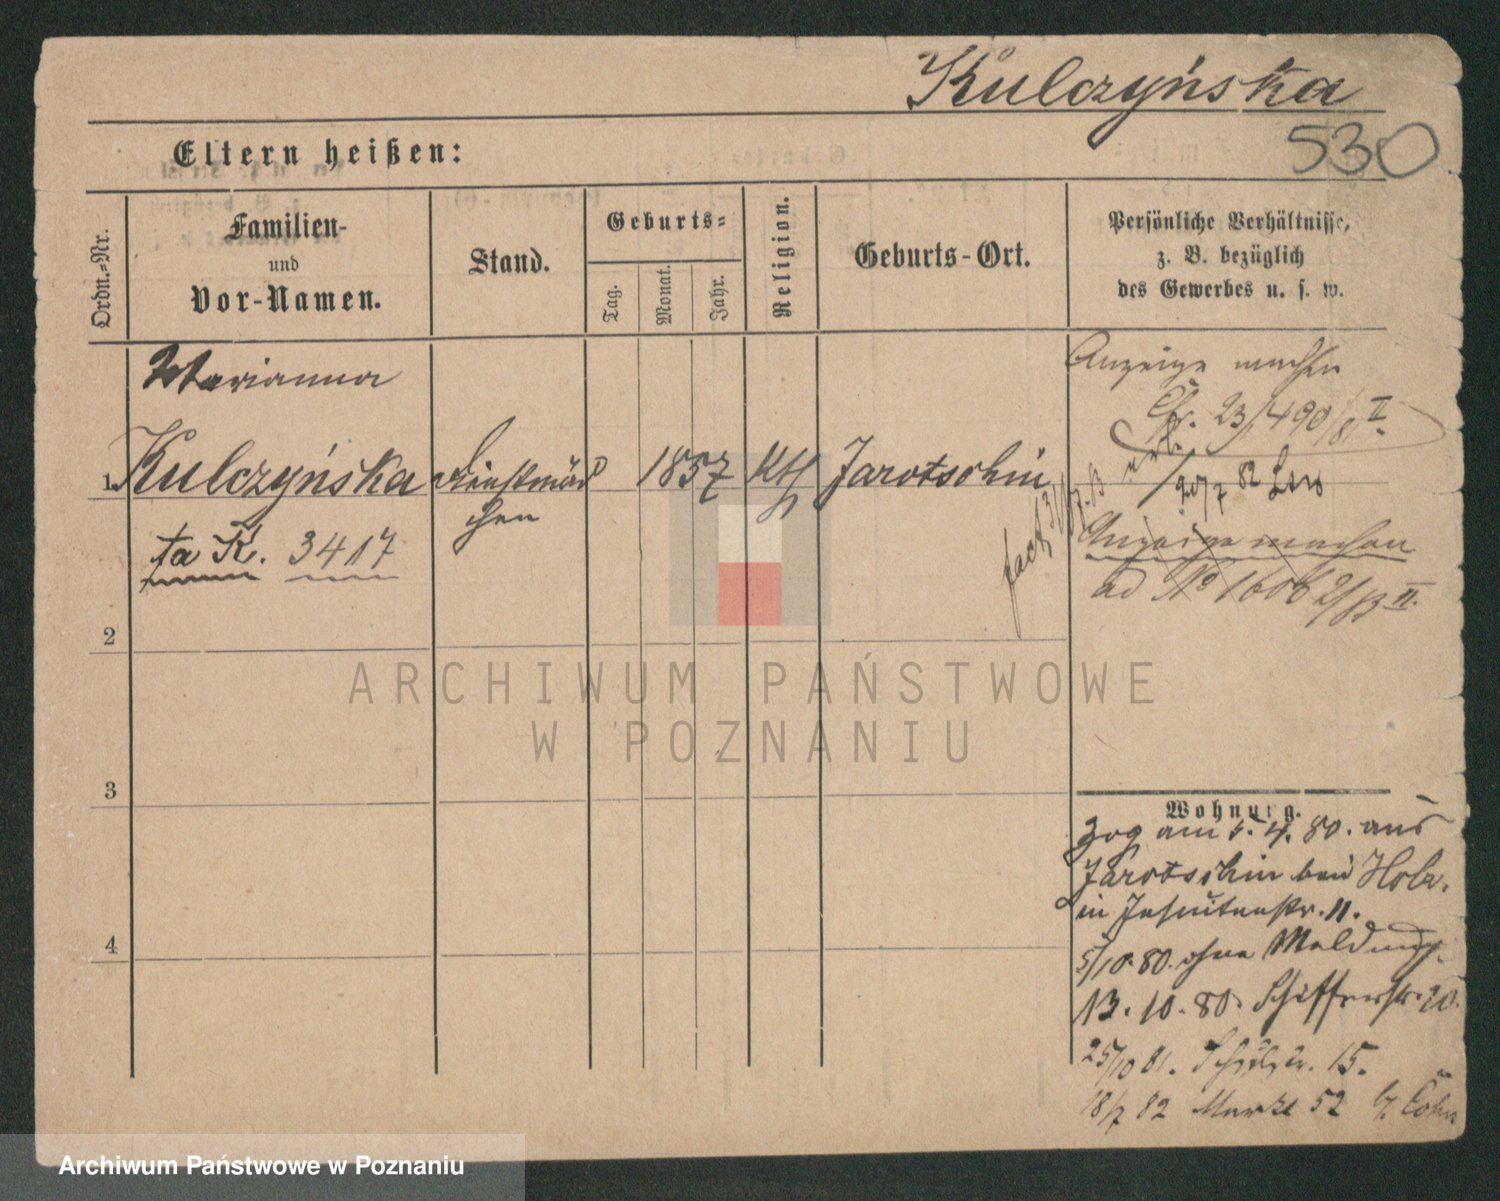 Kulczyńska
530
Eltern heißen:
Ordn.-Nr.
Familien-
und
Vor-Namen.
Stand.
Geburts-
Tag.
Monat.
Jahr.
Religion.
Geburts-Ort.
Persönliche Verhältnisse,
z. B. bezüglich
des Gewerbes u. s. w.
Marianna
1. Kulczyńska
Dienstmäd
chen
1857
Kth
Jarotschin
ta K. 3417
Anzeige machen
23/490/81 II.
20/7 82
Anzeige machen
ad No 1606 2/83 II.
2
3
4
Wohnung.
Zog am 5. 4. 80. aus
Jarotschin bei
in Jesuitenstr. 11.
5/10. 80. ohne Meldung.
13. 10. 80. Schifferstr. 20.
25/10 81. 15.
18/7 82 Markt 52 b/ Cohn
ARCHIWUM PAŃSTWOWE
W POZNANIU
Archiwum Państwowe w Poznaniu